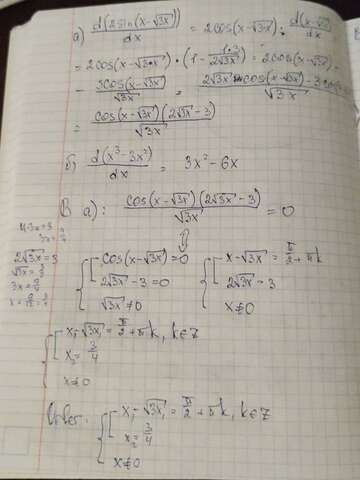 а) d(2sin(x-√3x))/dx = 2cos(x-√3x) · d(x-√3x)/dx
= 2cos(x-√3x) · (1 - 1·3/2√3x) = 2cos(x-√3x) -
- 3cos(x-√3x)/√3x = 2√3x cos(x-√3x) - 3 cos(x-√3x)/√3x
= cos(x-√3x)(2√3x-3)/√3x
б) d(x³-3x²)/dx = 3x²-6x
В а): cos(x-√3x)(2√3x-3)/√3x = 0
⇕
cos(x-√3x)=0
2√3x-3=0
√3x≠0
x-√3x = π/2+πk
2√3x=3
x≠0
2√3x=3
√3x=3/2
3x=9/4
x₁-√3x₁ = π/2+πk, k∈Z
x₂=3/4
x≠0
Ответ:
x₁-√3x₁ = π/2+πk, k∈Z
x₂=3/4
x≠0